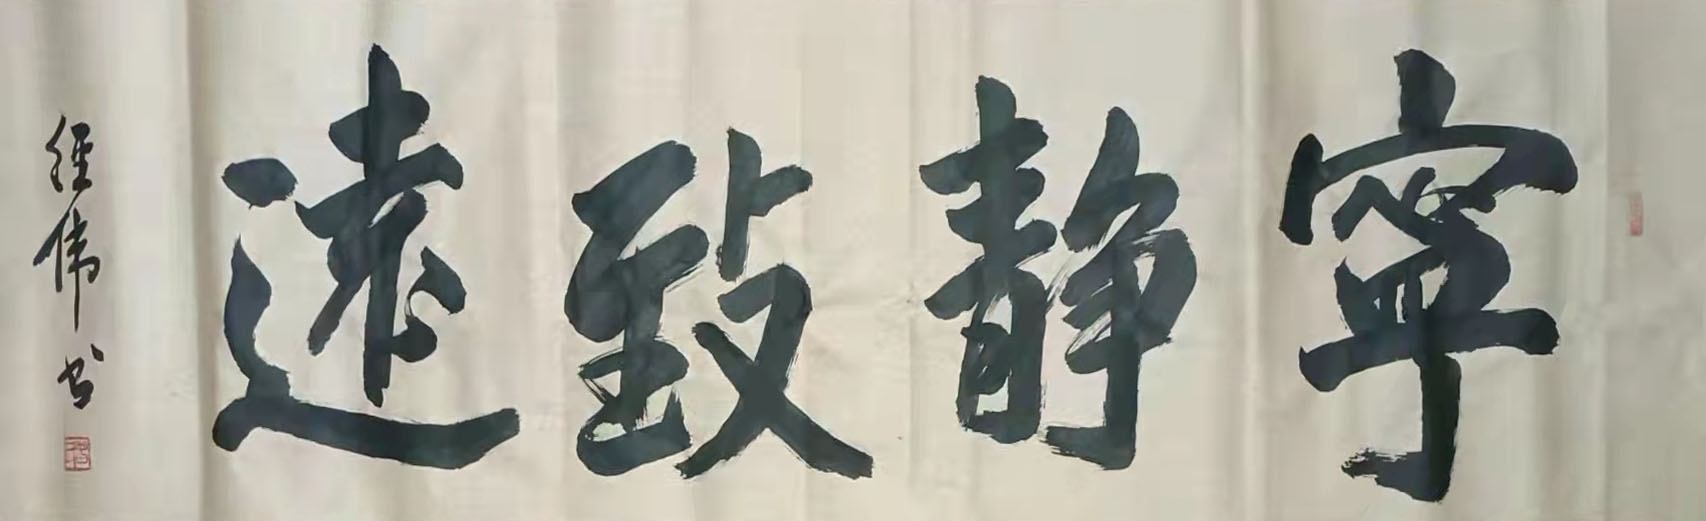 寧靜致遠
經偉书